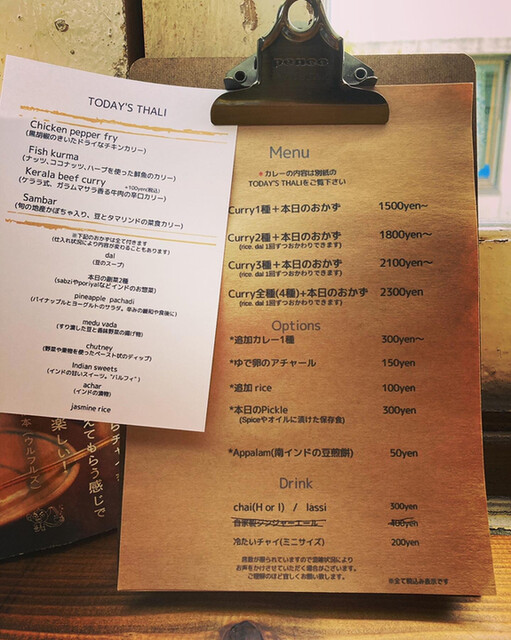 TODAY'S THALI
Chicken pepper fry
(黒胡椒のきいたドライなチキンカリー)
Fish kurma
(ナッツ、ココナッツ、ハーブを使った鮮魚のカリー)
Kerala beef curry +100yen(税込)
(ケララ式、ガラムマサラ香る牛肉の辛口カリー)
Sambar
(旬の地産かぼちゃ入り、豆とタマリンドの菜食カリー)
※下記のおかずは全て付きます
(仕入れ状況により内容が変わることもあります)
dal
(豆のスープ)
本日の副菜2種
(sabziやporiyalなどインドのお惣菜)
pineapple pachadi
(パイナップルとヨーグルトのサラダ。辛みの緩和や食後に)
medu vada
(すり潰した豆と香味野菜の揚げ物)
chutney
(野菜や果物を使ったペースト状のディップ)
Indian sweets
(インドの甘いスイーツ。"バルフィ")
achar
(インドの漬物)
jasmine rice
Menu
*カレーの内容は別紙の
TODAY'S THALIをご覧下さい
Curry1種+本日のおかず 1500yen〜
Curry2種+本日のおかず 1800yen〜
(rice. dal 1回ずつおかわりできます)
Curry3種+本日のおかず 2100yen〜
(rice. dal 1回ずつおかわりできます)
Curry全種(4種)+本日のおかず 2300yen
(rice. dal 1回ずつおかわりできます)
Options
*追加カレー1種 300yen〜
*ゆで卵のアチャール 150yen
*追加 rice 100yen
*本日のPickle 300yen
(Spiceやオイルに漬けた保存食)
*Appalam(南インドの豆煎餅) 50yen
Drink
chai(H or I) / lassi 300yen
自家製ジンジャーエール 400yen
冷たいチャイ(ミニサイズ) 200yen
席数が限られていますので混雑状況により
お声をかけさせていただく場合がございます。
ご理解のほど宜しくお願い致します。
※全て税込み表示です
んてもらう感じで
楽しい！
本(ウルフルズ)